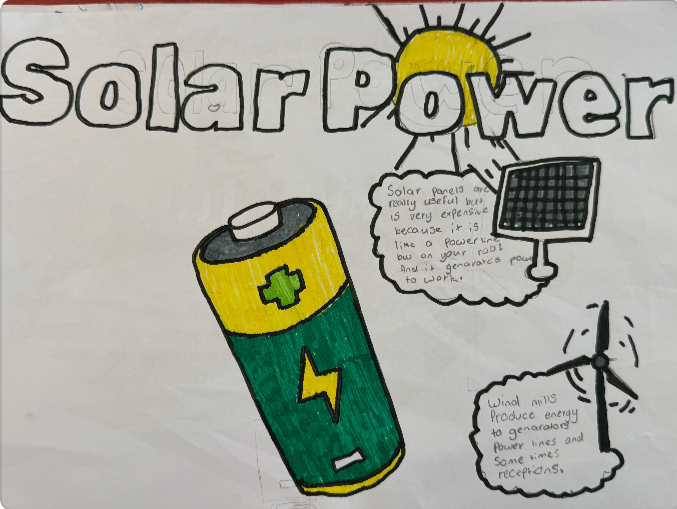 Solar Power
Solar panels are
really useful but
is very expensive
because it is
like a powerline
but on your roof
And it genarates power
to work.
Wind mills
Produce energy
to genarators
Power lines and
Some times
receptions.